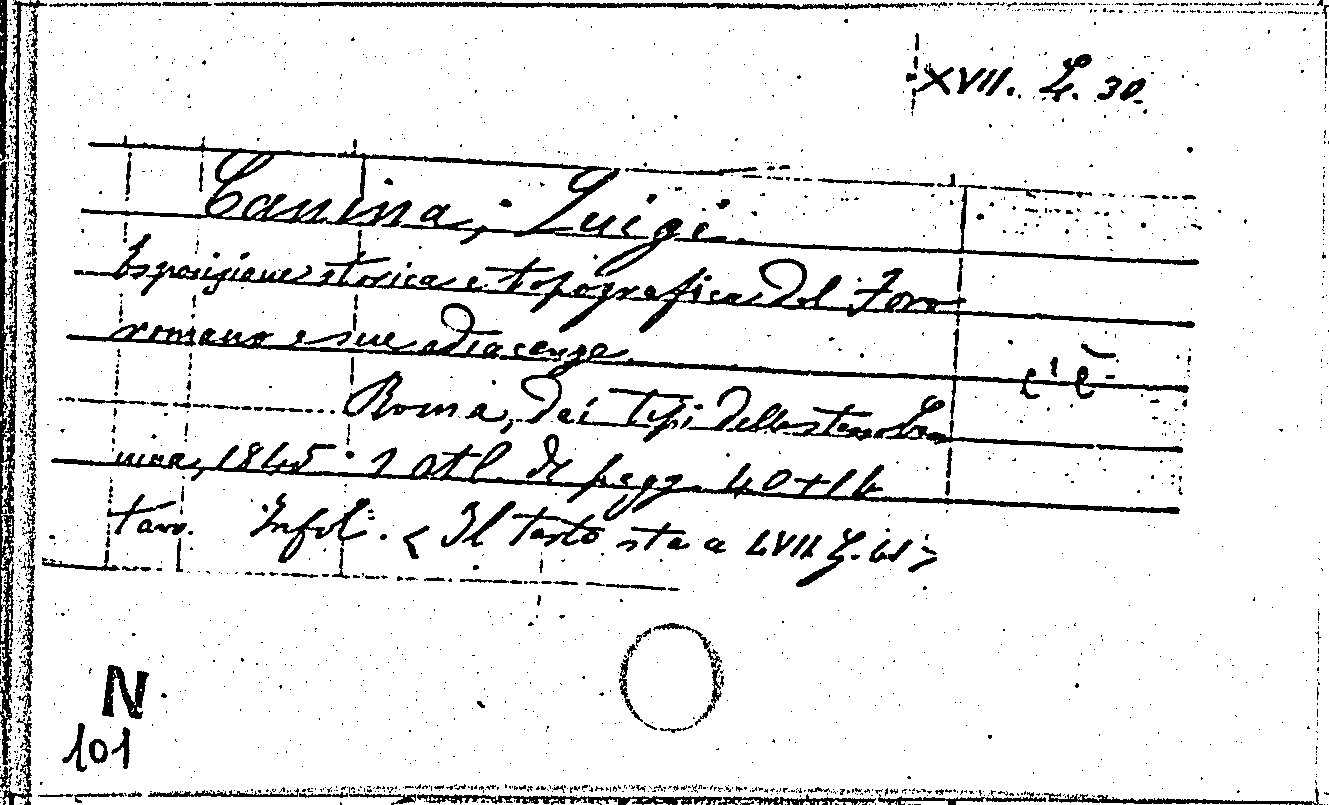 XVII. L. 30
Canina, Luigi.
Esposizione storica e topografica del Foro
romano e sue adiacenze.
c'è
Roma, dai tipi dello stesso Ca
nina, 1845. 1 atl. di pagg. 40+14
tavv. Infol. < Il testo sta a LVII. L. 61 >
N
101